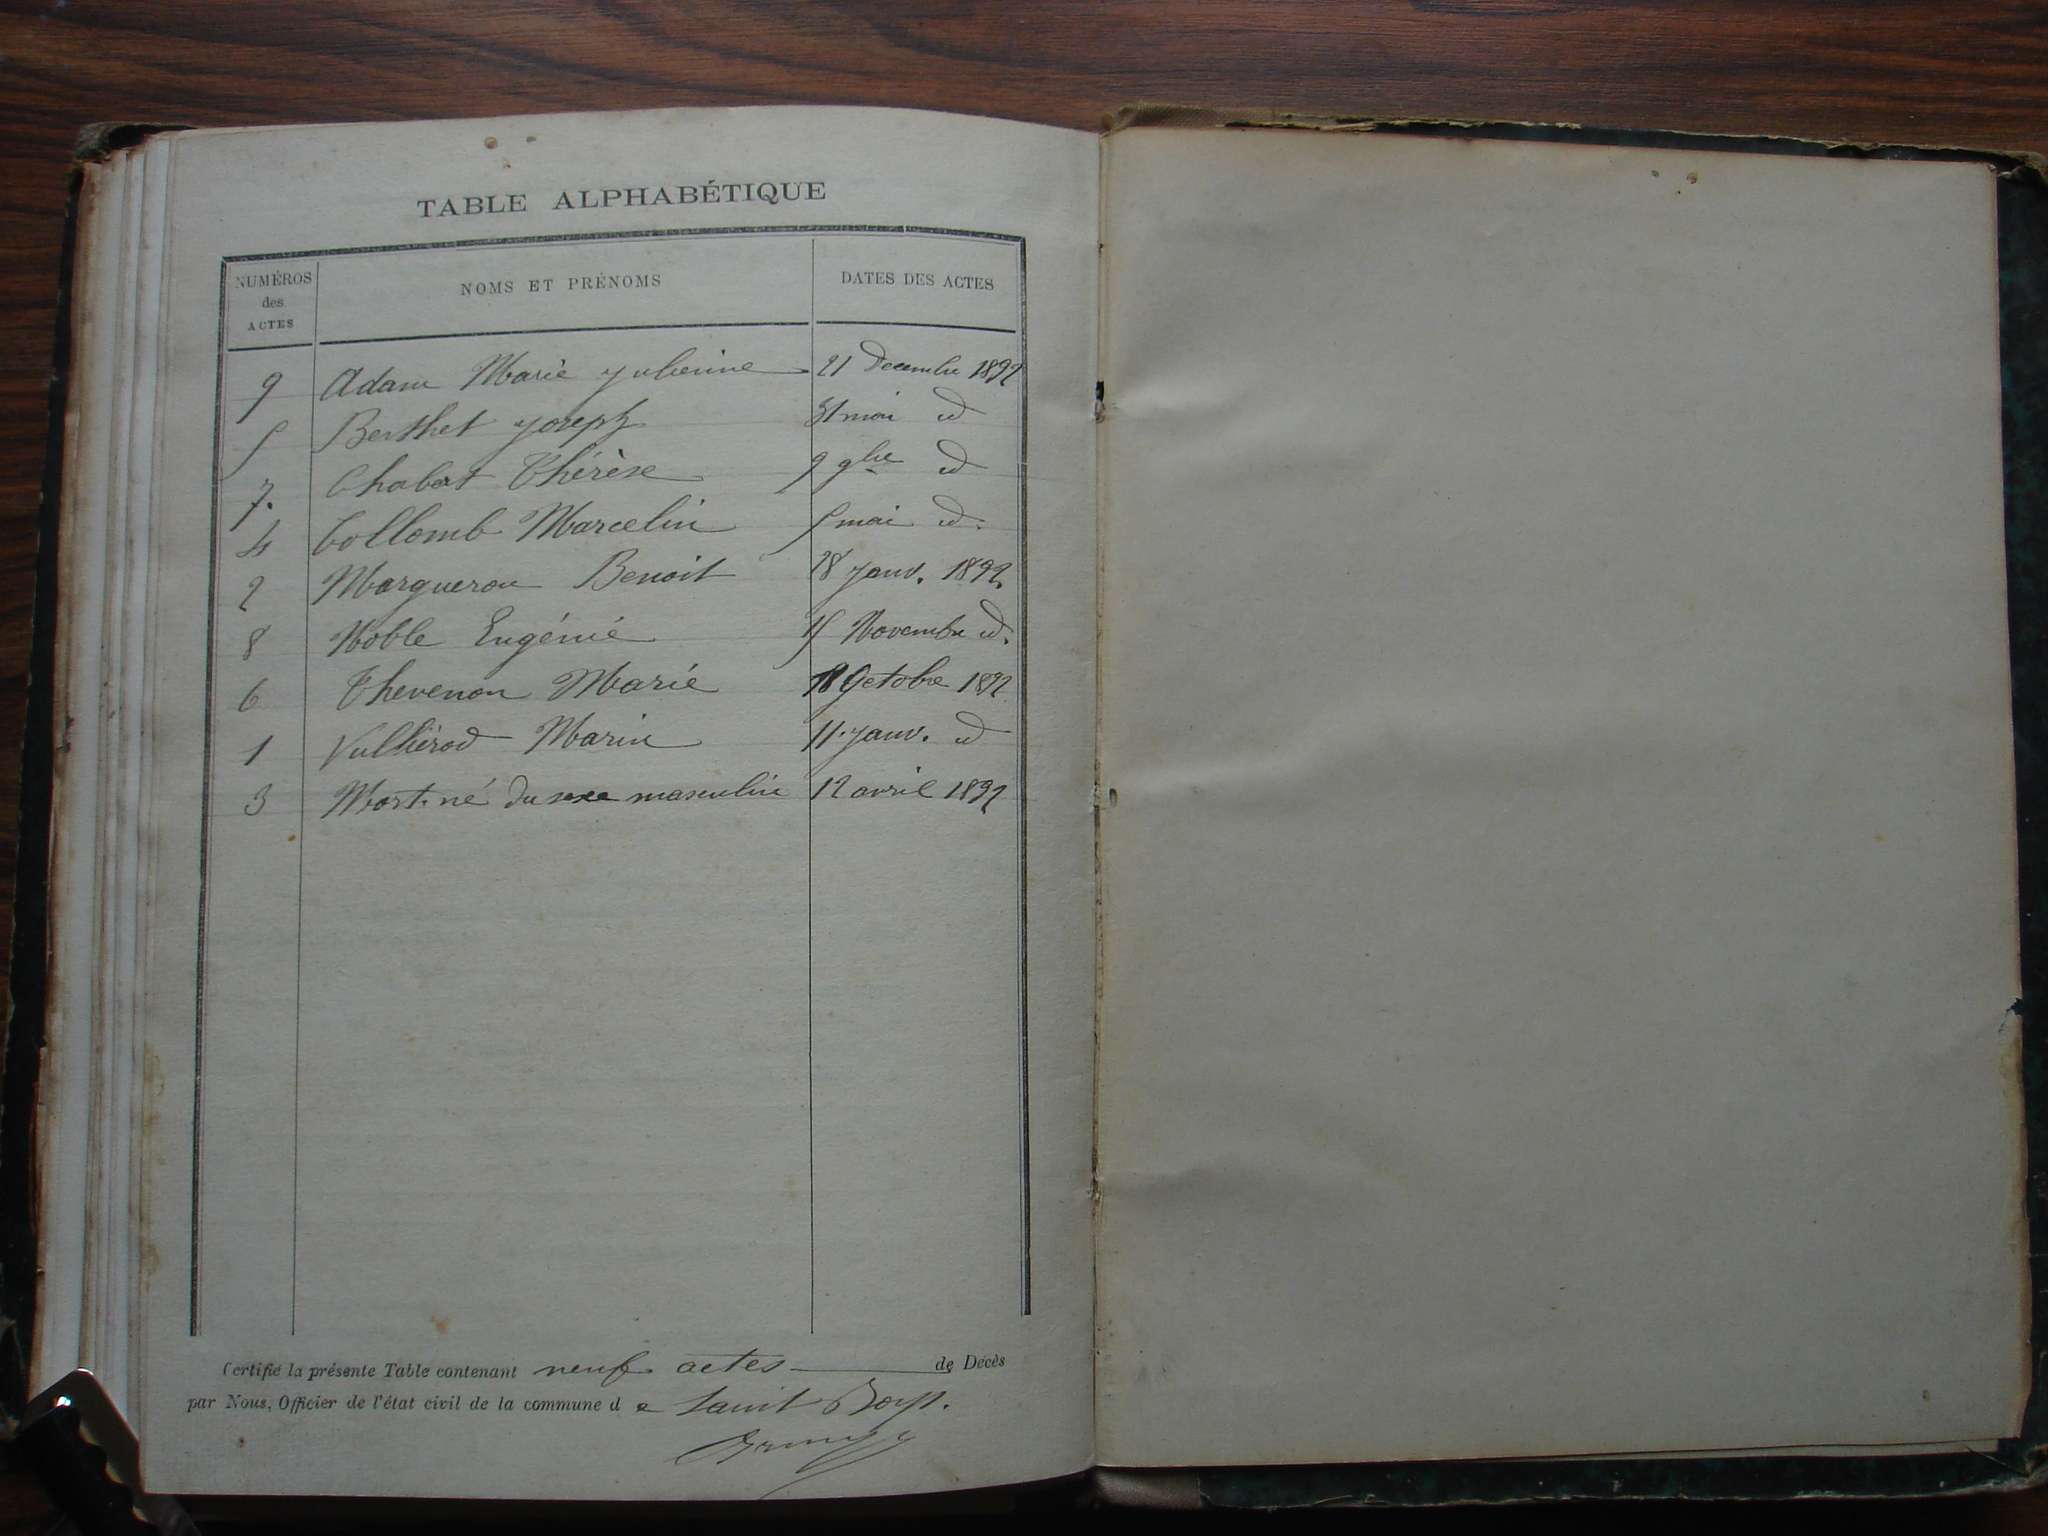 TABLE ALPHABÉTIQUE
NUMÉROS des ACTES NOMS ET PRÉNOMS DATES DES ACTES
9 Adam Marie Julienne 21 Decembre 1892
5 Berthet Joseph 31 mai id
7. Chabert Thérèse 9 9bre id
4 Collomb Marcelin 5 mai id.
2 Margueron Benoit 28 Janv. 1892
8 Noble Eugénie 15 Novembre id.
6 Thevenon Marie 18 Octobre 1892
1 Vullierod Marin 11 Janv. id
3 Mort-né du sexe masculin 12 avril 1892
Certifié la présente Table contenant neuf actes de Décès
par Nous, Officier de l'état civil de la commune de Saint Boys.